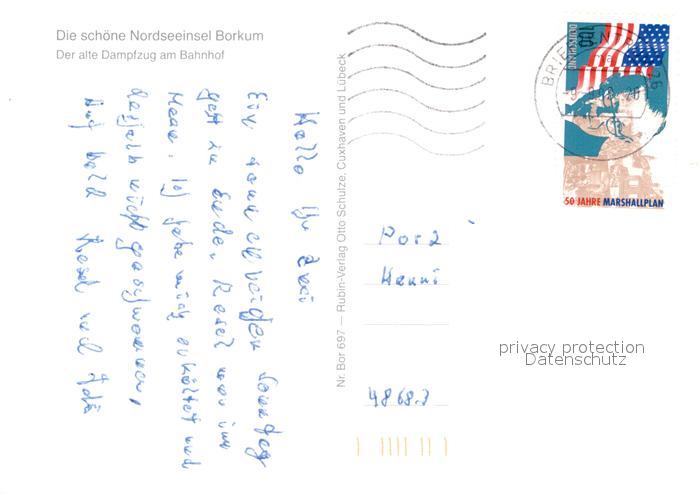 Die schöne Nordseeinsel Borkum
Der alte Dampfzug am Bahnhof
Hallo Ihr Zwei
Ein sonniger Sonntag
geht zu Ende. Resel war im
Meer. Ich habe mich erkältet und
deshalb nicht geschwommen.
Auf bald Resel und
Nr. Bor 697 — Rubin-Verlag Otto Schulze, Cuxhaven und Lübeck
DEUTSCHLAND
100
BRIEFZENTR
26
50 JAHRE MARSHALLPLAN
Hanni
48683
privacy protection
Datenschutz